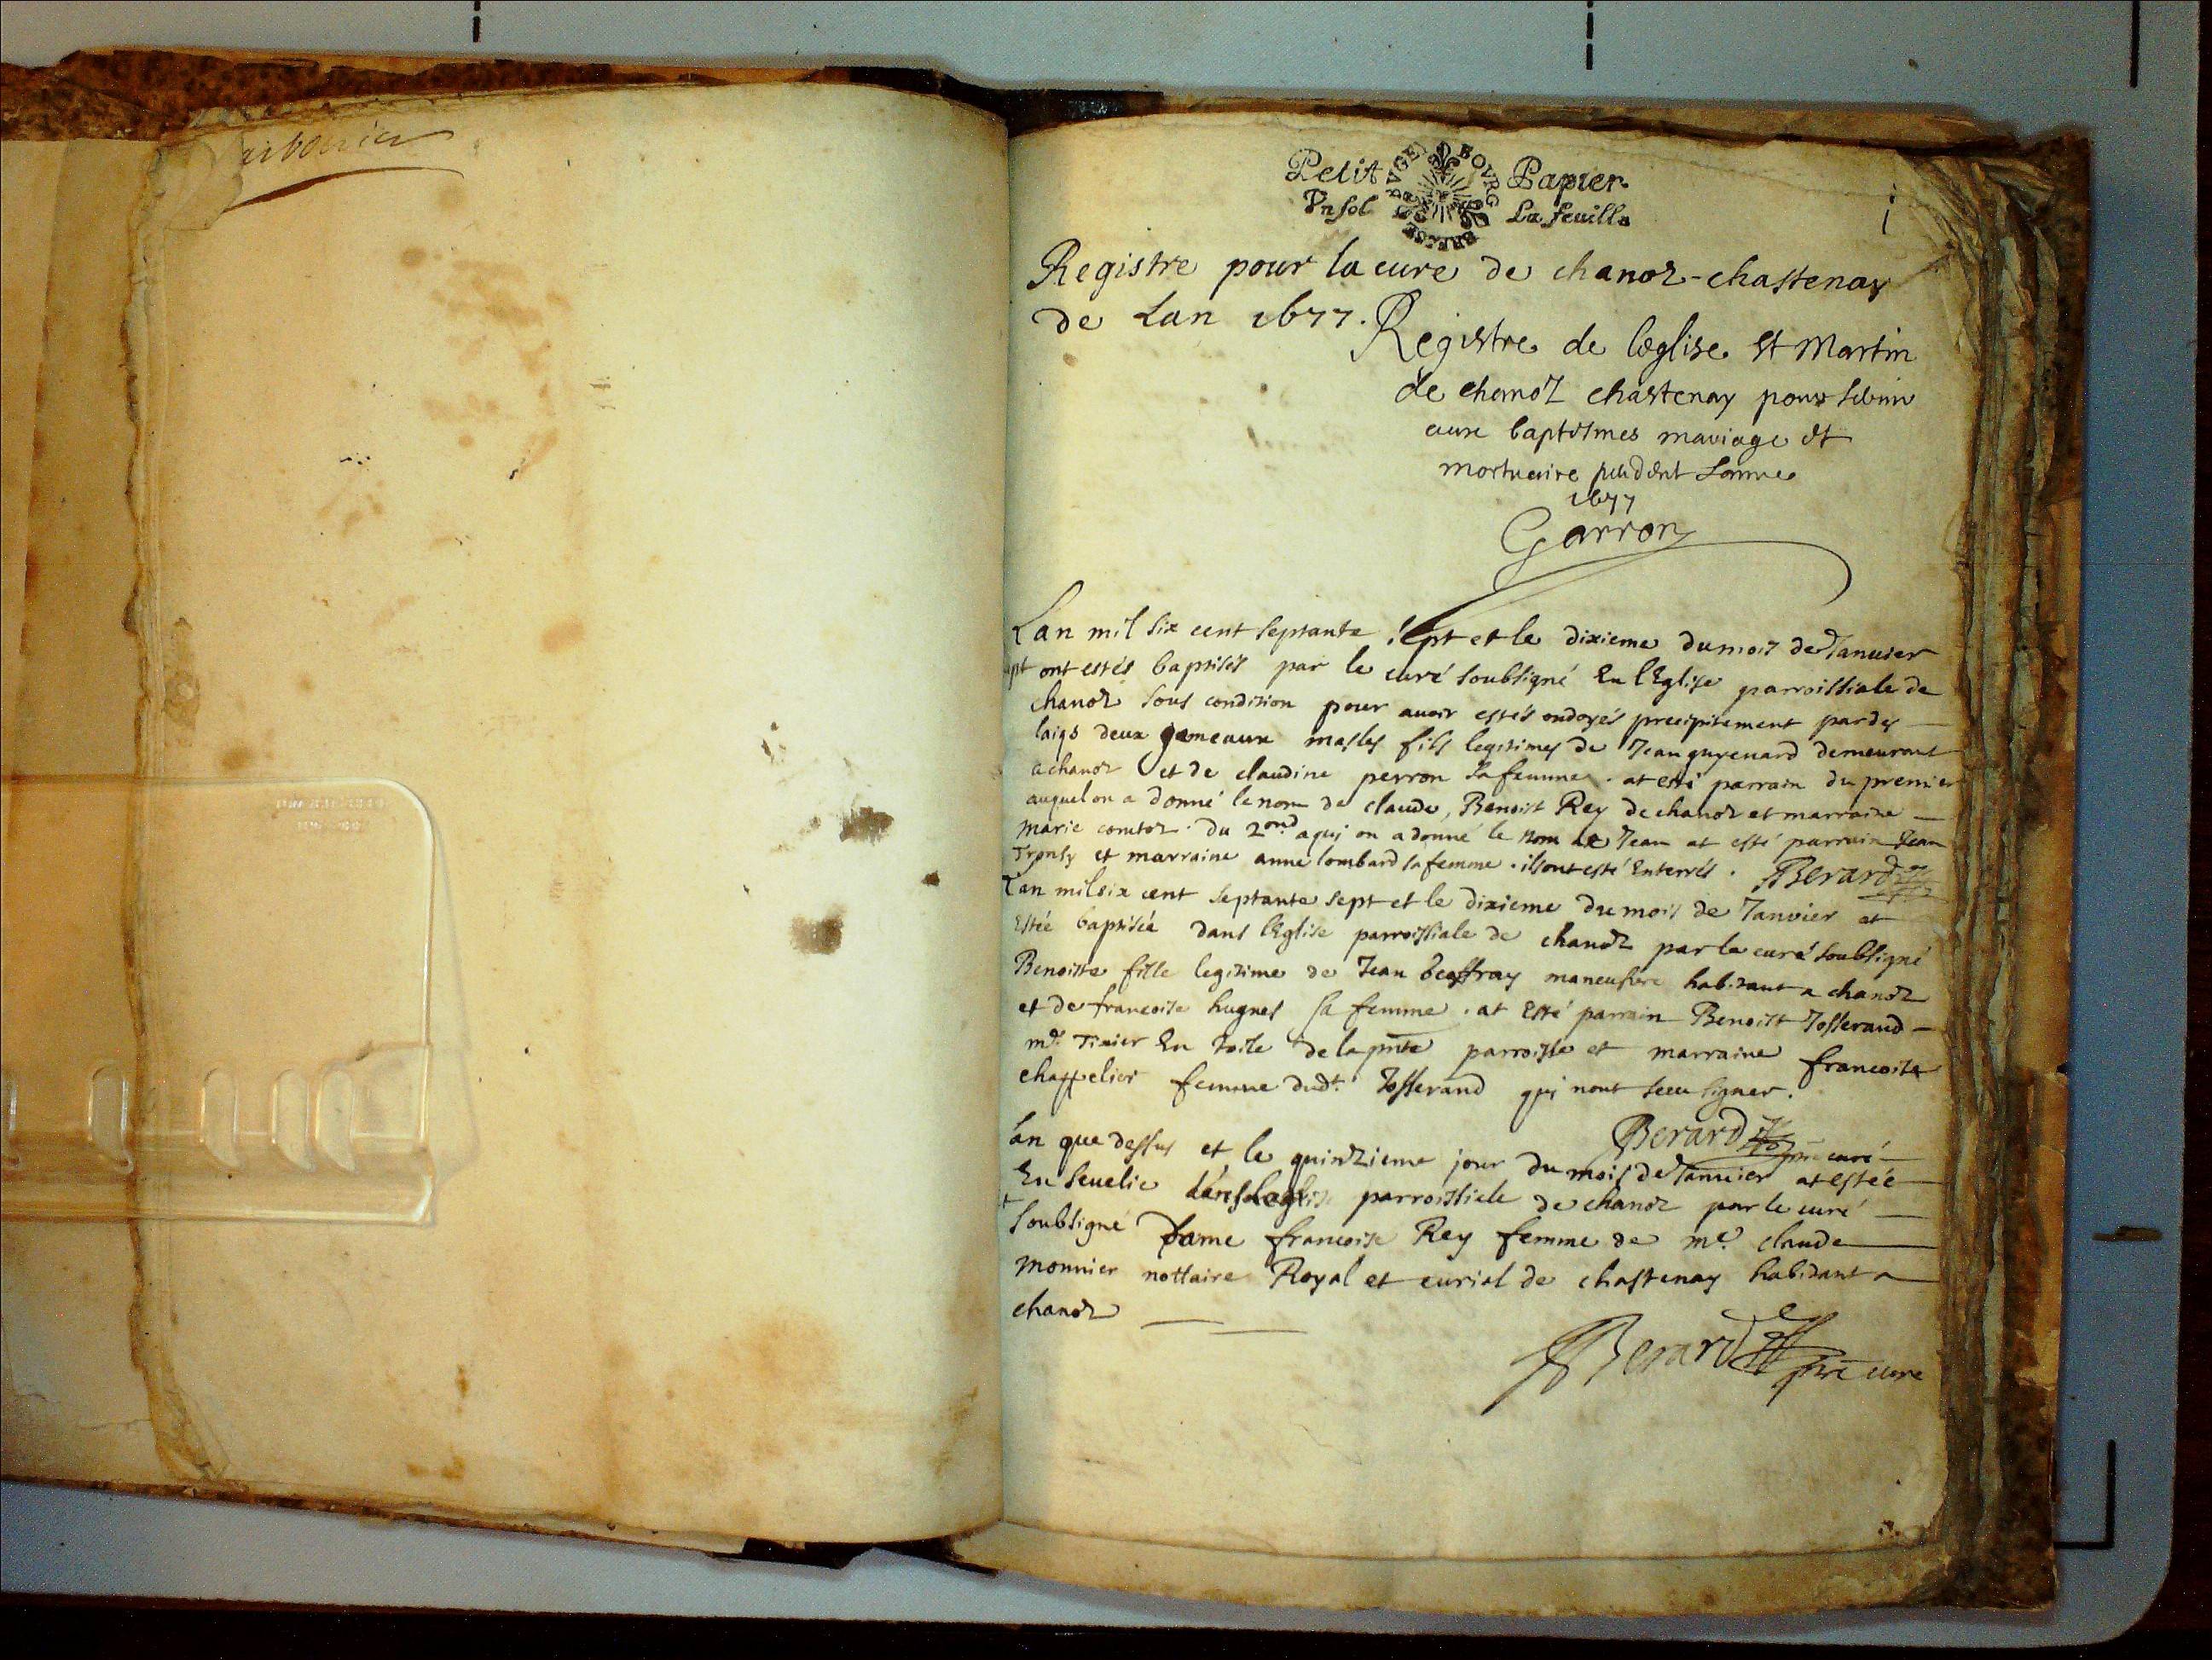 Petit Papier
Un sol La feuille
BOVRG BRESSE BVGEY
i
Registre pour la cure de chanoz-chastenay
de Lan 1677.
Registre de leglise St Martin
de chanoz chastenay pour servir
aux baptesmes mariage et
mortuaire pendent Lannee
1677
Garron
Lan mil six cent septante sept et le dixieme du mois de Januier
ont estés baptisés par le curé soubsigné En l'Eglise parroissiale de
chanoz sous condition pour auoir estés ondoyés precipitement par des
laigs deux gemeaux masles fils legitimes de Jean guyenard demeurant
a chanoz et de claudine perron sa femme. at esté parrain du premier
auquel on a donné le nom de claude, Benoist Rey de chanoz et marraine
marie comtoz. du 2ond a qui on a donné le nom de Jean at esté parrain Jean
Tronsy et marraine anne lombard sa femme. ils ont esté Enterrés. Berard
Lan mil six cent septante sept et le dixieme du mois de Janvier at
Estée baptisée dans l'Eglise parroissiale de chanoz par le curé soubsigné
Benoiste fille legitime de Jean beaffray habitant a chanoz
et de francoise hugues sa femme. at Esté parrain Benoist Josserand
md Tixier En toile de la pnte parroisse et marraine francoise
chappelier femme dudt. Josserand qui nont sceu signer.
Berard pre curé
Lan que dessus et le quinzieme jour du mois de Januier at estée
Enseuelie dans leglise parroissiale de chanoz par le curé
soubsigné Dame francoise Rey femme de me. claude
monnier nottaire Royal et curial de chastenay habitant a
chanoz
Berard pre cure